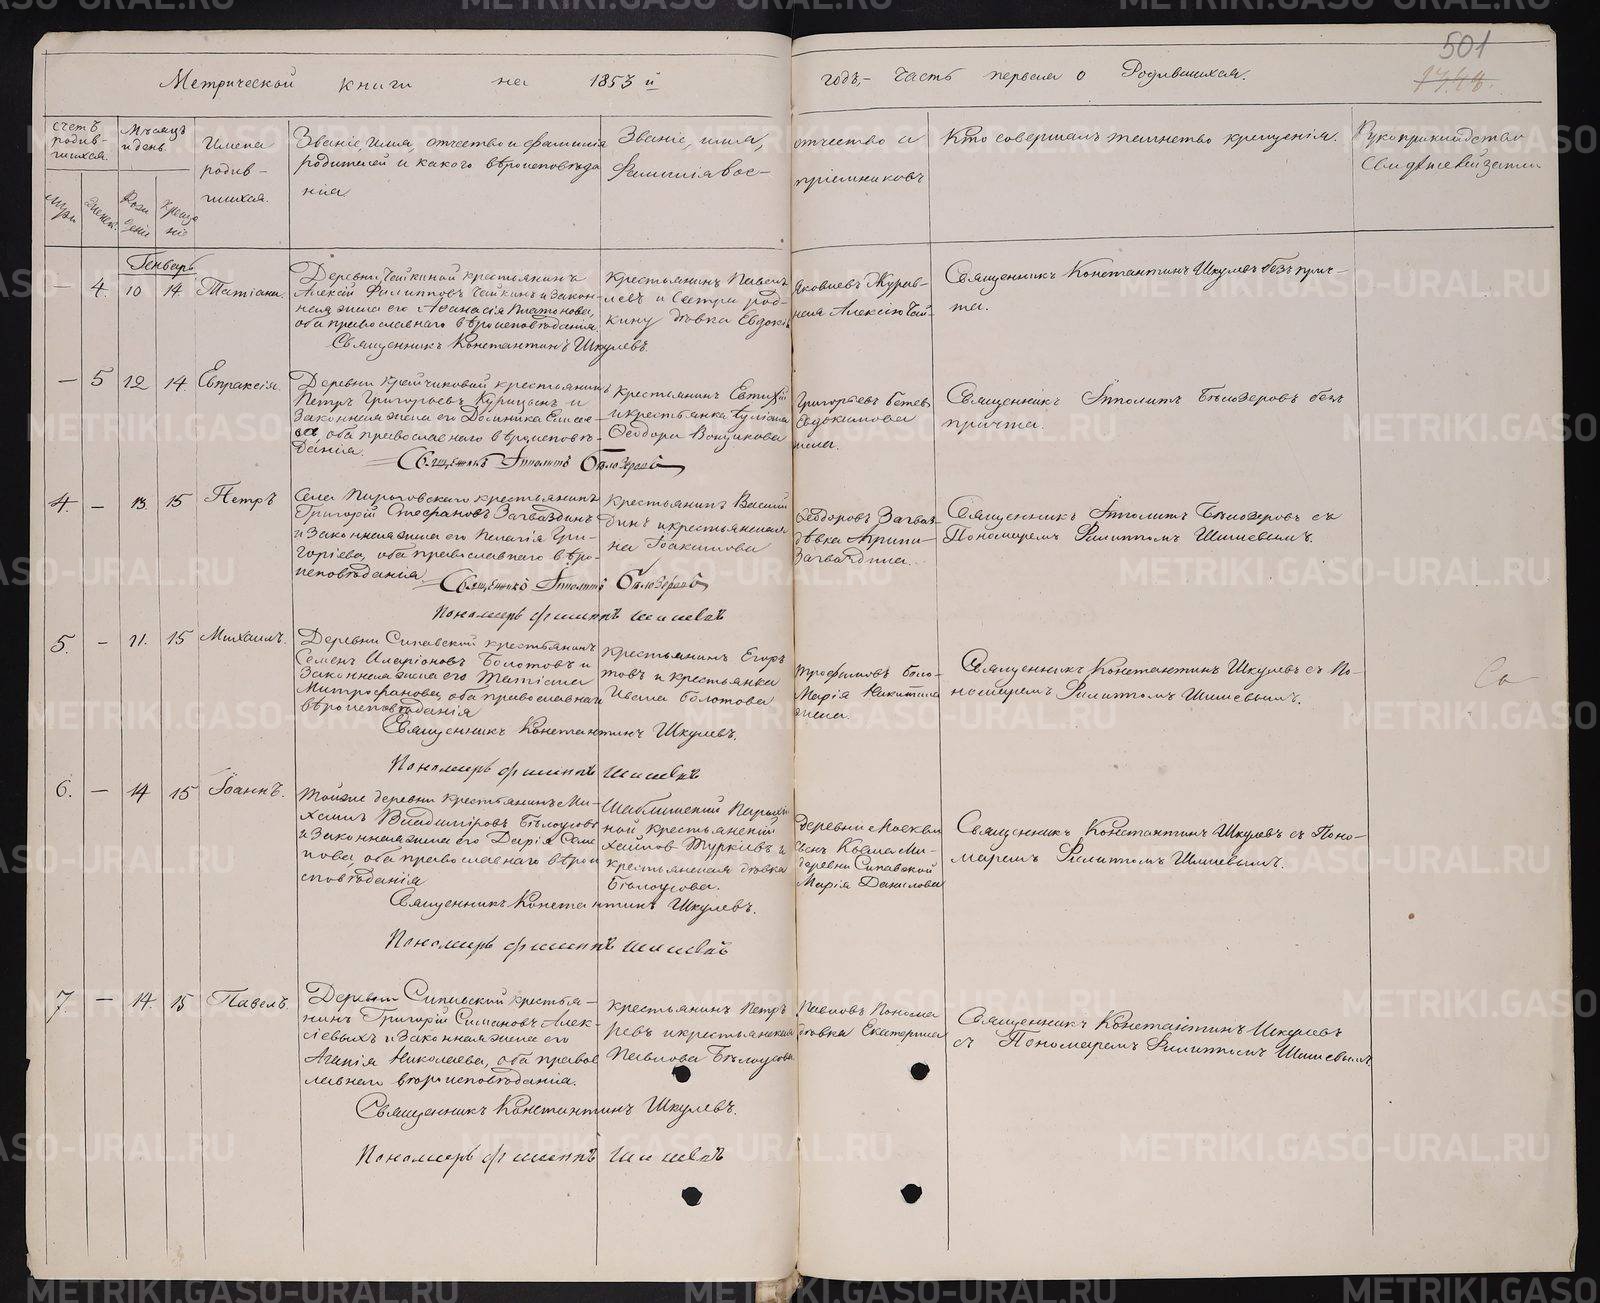 501
Метрической книги на 1853й годъ,- часть первая о Родившихся.
Счетъ родив-шихся.
Мѣсяцъ и день
Имена родив-шихся.
Званіе, имя, отчество и фамилія
родителей и какого вѣроисповѣда
нія
Званіе, имя, отчество и
фамилія вос- пріемниковъ
Кто совершалъ таинство крещенія.
Рукоприкладство
Генварь
— 4. 10 14. Татіана.
Деревни Чайкиной крестьянинъ
Алексій Филипповъ Чайкинъ и закон-
ная жена его Аѳанасія Платонова,
оба православнаго вѣроисповѣданія.
Священникъ Константинъ Шкулевъ.
Крестьянинъ Павелъ Яковлевъ Журав-
левъ и Сестра род- ная Алексію Чай-
кину дѣвка Евдокія
Священникъ Константинъ Шкулевъ безъ прич-
та.
— 5 12 14. Евпраксія.
Деревни крестьянинъ
Петръ Григорьевъ Курицынъ и
Законная жена его Домника
оба православнаго вѣроисповѣ-
данія.
Священникъ Ипполитъ Бѣлозеровъ
Крестьянинъ Евтихій Григорьевъ
и крестьянка Евдокимова
Ѳеодора
Священникъ Ипполитъ Бѣлозеровъ безъ
причта.
4. — 13 15 Петръ
Села Пироговскаго крестьянинъ
Григорій Стефановъ Загваздинъ
и Законная жена его Пелагія Гри-
горіева, оба православнаго вѣро-
исповѣданія.
Священникъ Ипполитъ Бѣлозеровъ
Пономарь Филиппъ Шишевъ
Крестьянинъ Василій Ѳеодоровъ Загваз-
динъ и крестьянская дѣвка Агрипи-
на Іоакимова Загваздина.
Священникъ Ипполитъ Бѣлозеровъ съ
Пономаремъ Филиппомъ Шишевымъ.
5. — 11. 15 Михаилъ.
Деревни Сипавской крестьянинъ
Семенъ Иларіоновъ Болотовъ и
Законная жена его Татіана
Митрофанова, оба православнаго
вѣроисповѣданія
Священникъ Константинъ Шкулевъ.
Пономарь Филиппъ Шишевъ
Крестьянинъ Егоръ Трофимовъ Боло-
товъ и крестьянка Марія Никитина
Ивана Болотова жена.
Священникъ Константинъ Шкулевъ съ По-
номаремъ Филиппомъ Шишевымъ.
6. — 14 15 Іоаннъ.
Тойже деревни крестьянинъ Ми-
хаилъ Владиміровъ Бѣлоусовъ
и Законная жена его Дарія
оба православнаго вѣрои
сповѣданія
Священникъ Константинъ Шкулевъ.
Пономарь Филиппъ Шишевъ
деревни
крестьянскій сынъ Козма Ми-
хайловъ и деревни Сипавской
крестьянская дѣвка Марія Данилова
Бѣлоусова.
Священникъ Константинъ Шкулевъ съ Поно-
маремъ Филиппомъ Шишевымъ.
7. — 14. 15 Павелъ.
Деревни Сипавской крестья-
нинъ Григорій Симановъ Алек-
сіевыхъ и Законная жена его
Агапія Николаева, оба право
славнаго вѣроисповѣданія.
Священникъ Константинъ Шкулевъ.
Пономарь Филиппъ Шишевъ
Крестьянинъ Петръ Павловъ Понома
ревъ и крестьянская дѣвка Екатерина
Павлова Бѣлоусова
Священникъ Константинъ Шкулевъ
съ Пономаремъ Филиппомъ Шишевымъ.
METRIKI.GASO-URAL.RU